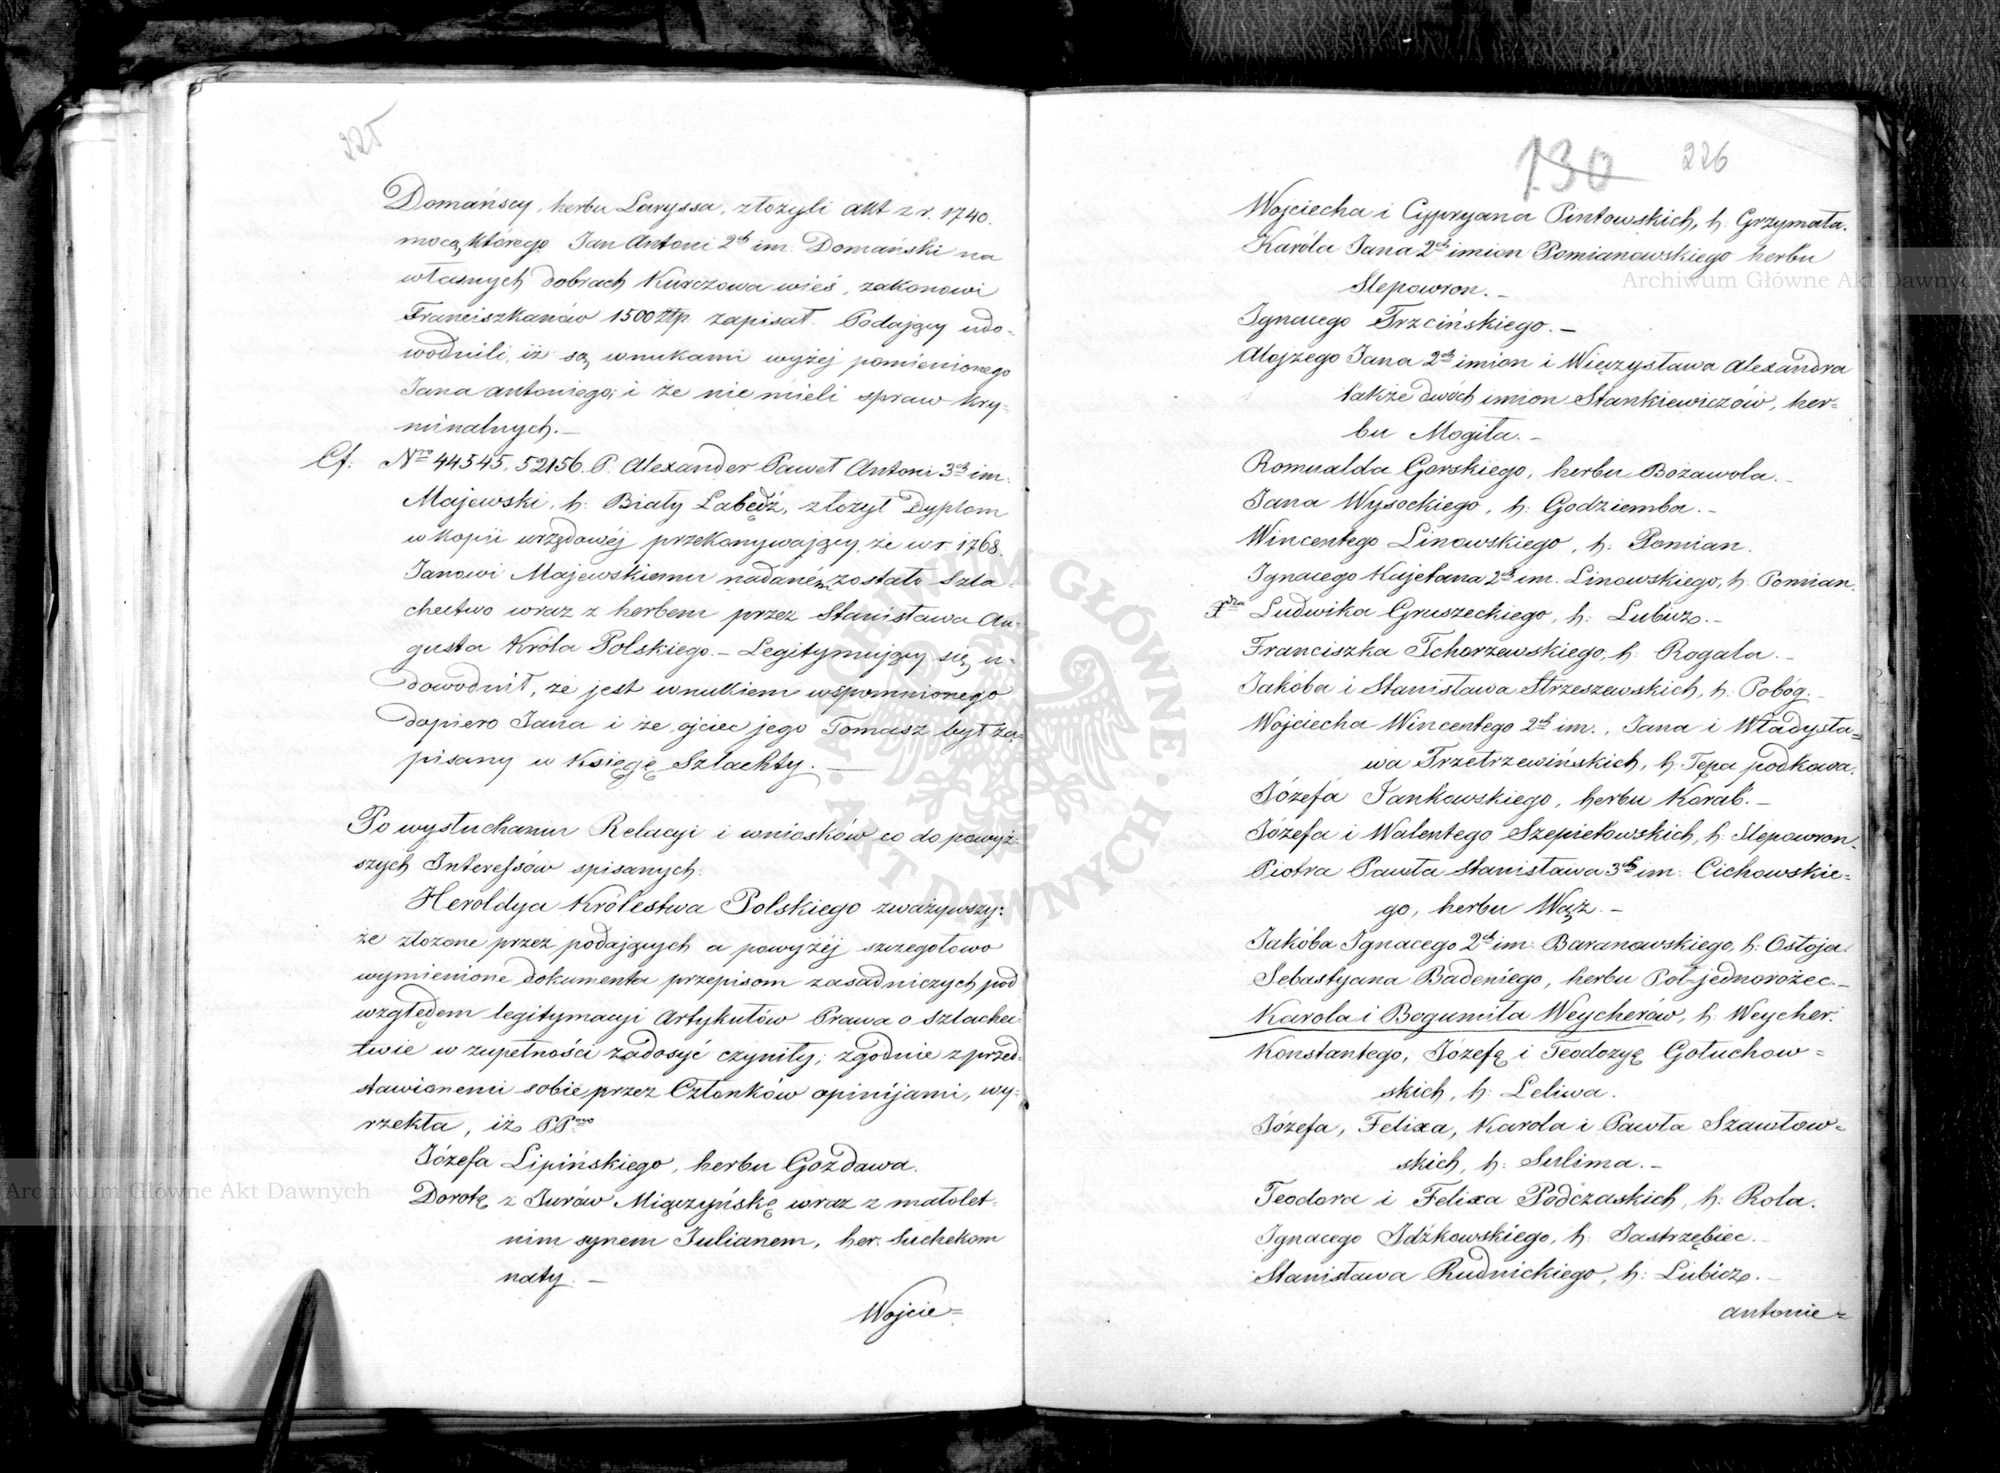 225
Domańscy, herbu Laryssa, złożyli akt z r. 1740.
mocą którego Jan Antoni 2ch im. Domański na
własnych dobrach Kurczowa wieś, zakonowi
Franciszkanów 1500 złp. zapisał. Podający udo-
wodnili, iż są wnukami wyżej pomienionego
Jana Antoniego; i że nie mieli spraw kry-
minalnych.—
Nro 44545, 52156. P. Alexander Paweł Antoni 3ch im.
Majewski, h: Biały Łabędź, złożył Dyplom
w kopii urzędowéj przekonywający, że w r. 1768.
Janowi Majewskiemu nadaném zostało Szla-
chectwo wraz z herbem przez Stanisława Au-
gusta Króla Polskiego.— Legitymujący się u-
dowodnił, że jest wnukiem wspomnionego
dopiero Jana i że ojciec jego Tomasz był za-
pisany w Księgę Szlachty.—
Po wysłuchaniu Relacyi i wniosków co do powyż-
szych Interessów spisanych:
Heroldya Królestwa Polskiego zważywszy:
że złożone przez podających a powyżéj szczegółowo
wymienione dokumenta przepisom zasadniczych pod
względem legitymacyi Artykułów Prawa o szlachec-
twie w zupełności zadosyć czyniły; zgodnie z przed-
stawionemi sobie przez Członków opinijami, wy-
rzekła, iż PP.
Józefa Lipińskiego, herbu Gozdawa.
Dorotę z Jurów Miączyńskę wraz z małolet-
nim synem Julianem, her. Suchekom
naty.—
Wojcie=
130 226
Wojciecha i Cypryana Pintowskich, h: Grzymała.
Karóla Jana 2ch imion Pomianowskiego herbu
Slepowron.—
Ignacego Trzcińskiego.—
Alojzego Jana 2ch imion i Mieczysława Alexandra
także dwóch imion Stankiewiczów, her-
bu Mogiła.—
Romualda Gorskiego, herbu Bożawola.—
Jana Wysockiego, h: Godziemba.—
Wincentego Linowskiego, h: Pomian.
Ignacego Kajetana 2ch im. Linowskiego, h: Pomian.
Ludwika Gruszeckiego, h: Lubicz.—
Franciszka Tchorzewskiego, h: Rogala.—
Jakóba i Stanisława Strzeszewskich, h: Pobóg.—
Wojciecha Wincentego 2ch im., Jana i Władysła=
wa Trzetrzewińskich, h: Tępa podkowa.
Józefa Jankowskiego, herbu Korab.—
Józefa i Walentego Szepietowskich, h: Slepowron.
Piotra Pawła Stanisława 3ch im: Cichowskie=
go, herbu Wąż.—
Jakóba Ignacego 2ch im: Baranowskiego, h: Ostoja.
Sebastyana Badeniego, herbu Pół-jednorożec.—
Karola i Bogumiła Weycherów, h: Weycher.
Konstantego, Józefę i Teodozyę Gołuchow=
skich, h: Leliwa.
Józefa, Felixa, Karola i Pawła Szawłow=
skich, h: Sulima.—
Teodora i Felixa Podczaskich, h: Rola.
Ignacego Idźkowskiego, h: Jastrzębiec.—
Stanisława Rudnickiego, h: Lubicz.—
Antonie=
Archiwum Główne Akt Dawnych
Archiwum Główne Akt Dawnych
ARCHIWUM GŁÓWNE AKT DAWNYCH